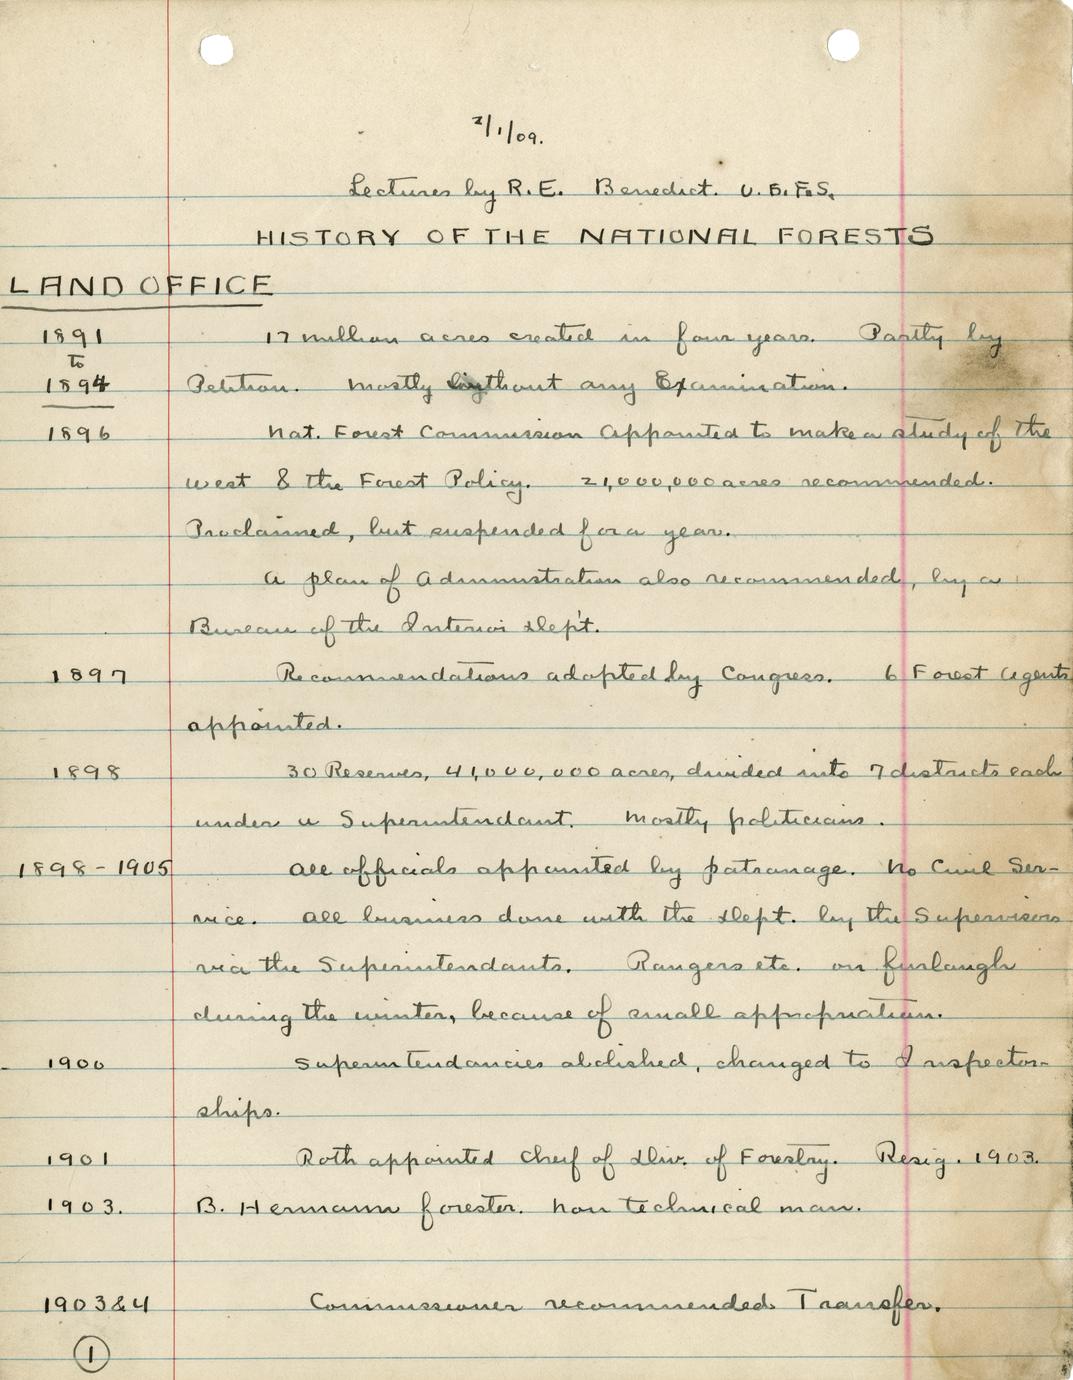 2/1/09.
Lectures by R.E. Benedict. U.S.F.S.
HISTORY OF THE NATIONAL FORESTS
LAND OFFICE
1891 17 million acres created in four years. Partly by
to
1894 Petition. Mostly without any Examination.
1896 Nat. Forest Commission Appointed to make a study of the
west & the Forest Policy. 21,000,000 acres recommended.
Proclaimed, but suspended for a year.
A plan of Administration also recommended, by a
Bureau of the Interior Dep't.
1897 Recommendations adopted by Congress. 6 Forest Agents
appointed.
1898 30 Reserves, 41,000,000 acres, divided into 7 districts each
under a Superintendant. Mostly politicians.
1898-1905 All officials appointed by patronage. No Civil Ser-
vice. All business done with the Dept. by the Supervisors
via the Superintendants. Rangers etc. on furlaugh
during the winter, because of small appropriation.
1900 Superintendancies abolished, changed to Inspector-
ships.
1901 Roth appointed Cheif of Div. of Forestry. Resig. 1903.
1903. B. Hermann forester. Non technical man.
1903&4 Commissioner recommended Transfer.
1